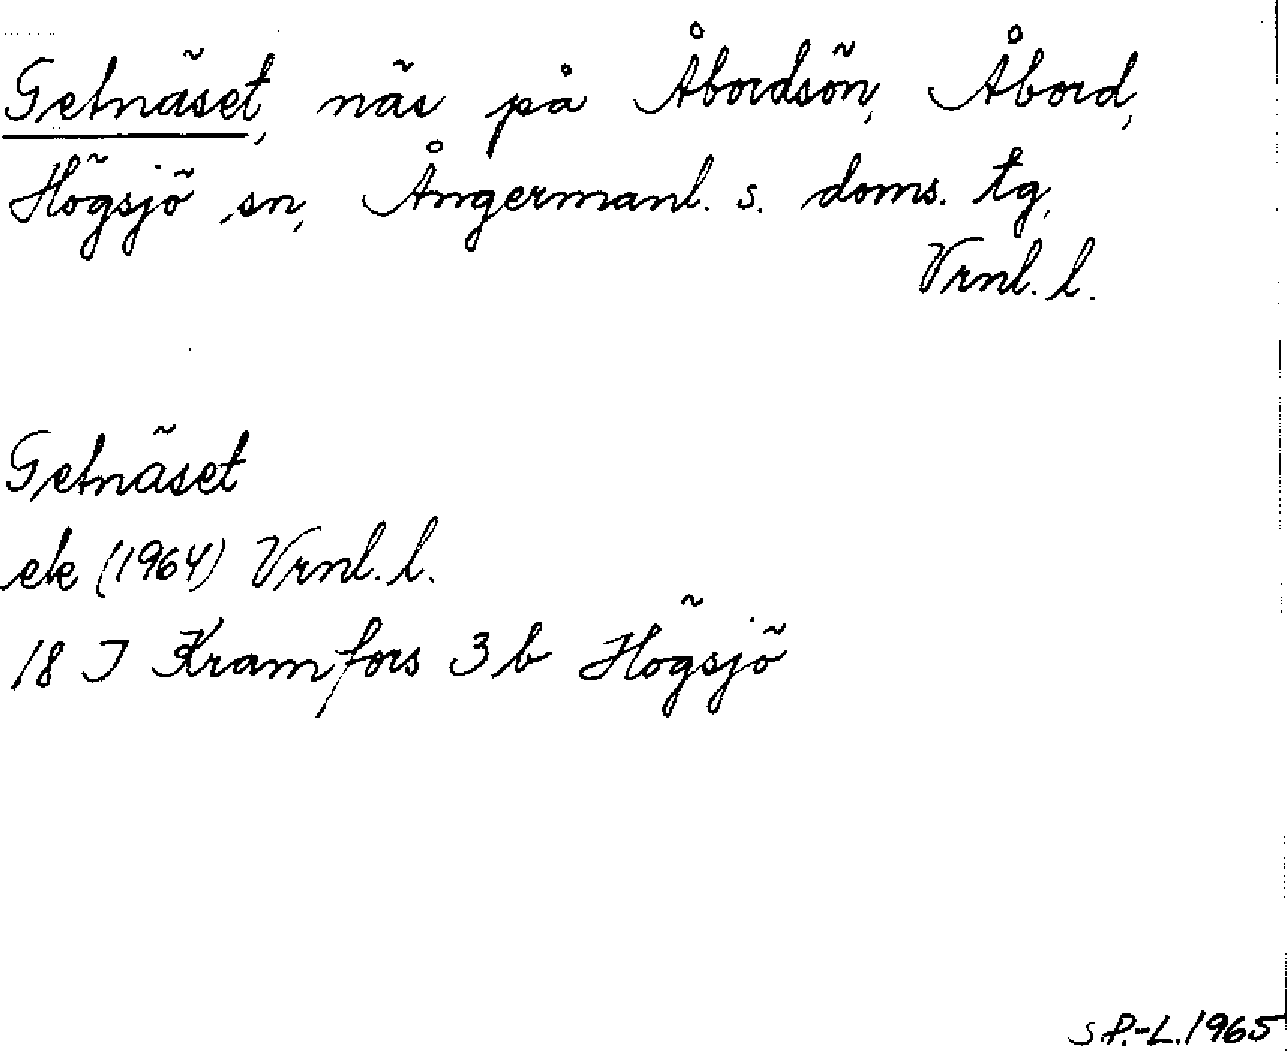 Getnäset, näs på Åbordsön, Åbord,
Högsjö sn, Ångermanl. s. doms. tg,
Vrnl. l.
Getnäset
ek (1964) Vrnl. l.
18 I Kramfors 3 b Högsjö
S P.-L. 1965